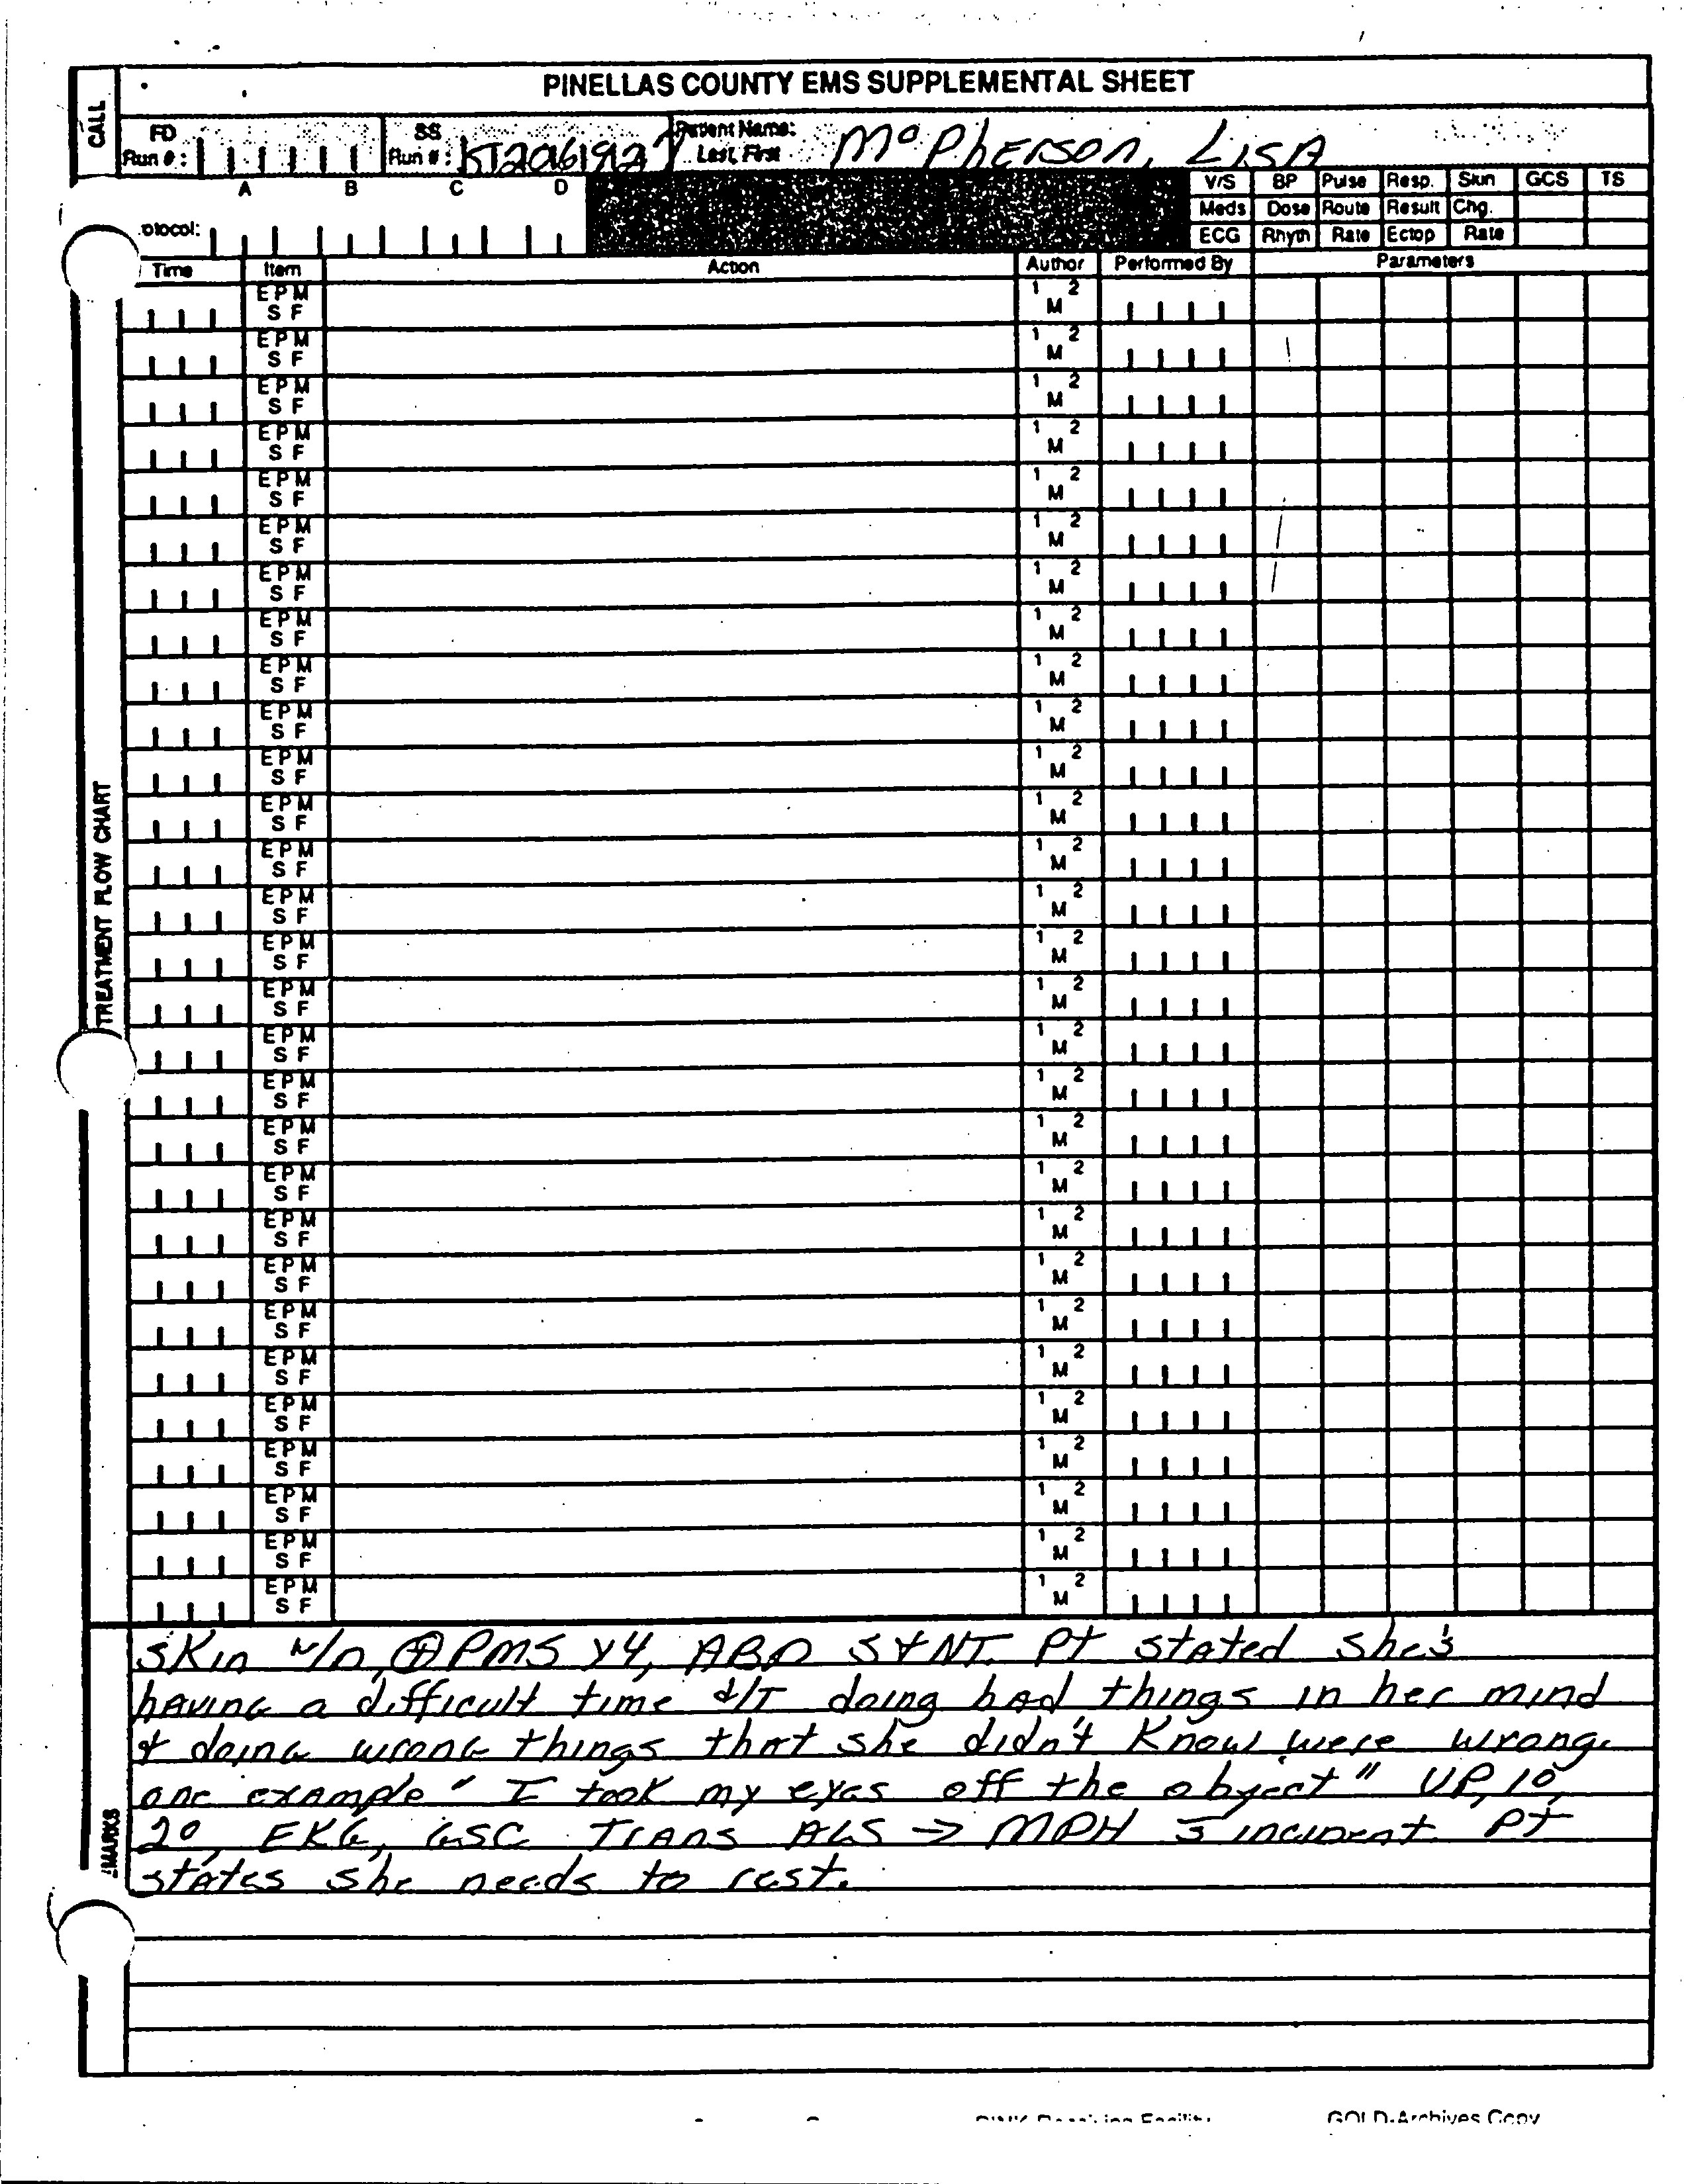 PINELLAS COUNTY EMS SUPPLEMENTAL SHEET
CALL
FD Run #:
SS Run #: KT2061927
Patient Name: Last, First McPherson, LISA
A B C D
otocol:
V/S BP Pulse Resp. Skin GCS TS
Meds Dose Route Result Chg.
ECG Rhyth Rate Ectop Rate
Time Item Action Author Performed By Parameters
EPM 1 2
S F M
EPM 1 2
S F M
EPM 1 2
S F M
EPM 1 2
S F M
EPM 1 2
S F M
EPM 1 2
S F M
EPM 1 2
S F M
EPM 1 2
S F M
EPM 1 2
S F M
EPM 1 2
S F M
EPM 1 2
S F M
EPM 1 2
S F M
EPM 1 2
S F M
EPM 1 2
S F M
EPM 1 2
S F M
EPM 1 2
S F M
EPM 1 2
S F M
EPM 1 2
S F M
EPM 1 2
S F M
EPM 1 2
S F M
EPM 1 2
S F M
EPM 1 2
S F M
EPM 1 2
S F M
EPM 1 2
S F M
EPM 1 2
S F M
EPM 1 2
S F M
EPM 1 2
S F M
EPM 1 2
S F M
EPM 1 2
S F M
TREATMENT FLOW CHART
SKin w/n, ⊕ PMS x4, ABD S+NT. Pt stated she's
having a difficult time d/t doing bad things in her mind
+ doing wrong things that she didn't Know were wrong.
one example "I took my eyes off the object" VP, 1º,
2º, EKG, GSC Trans ALS → MPH incident. Pt
states she needs to rest.
MARKS
GOLD-Archives Copy